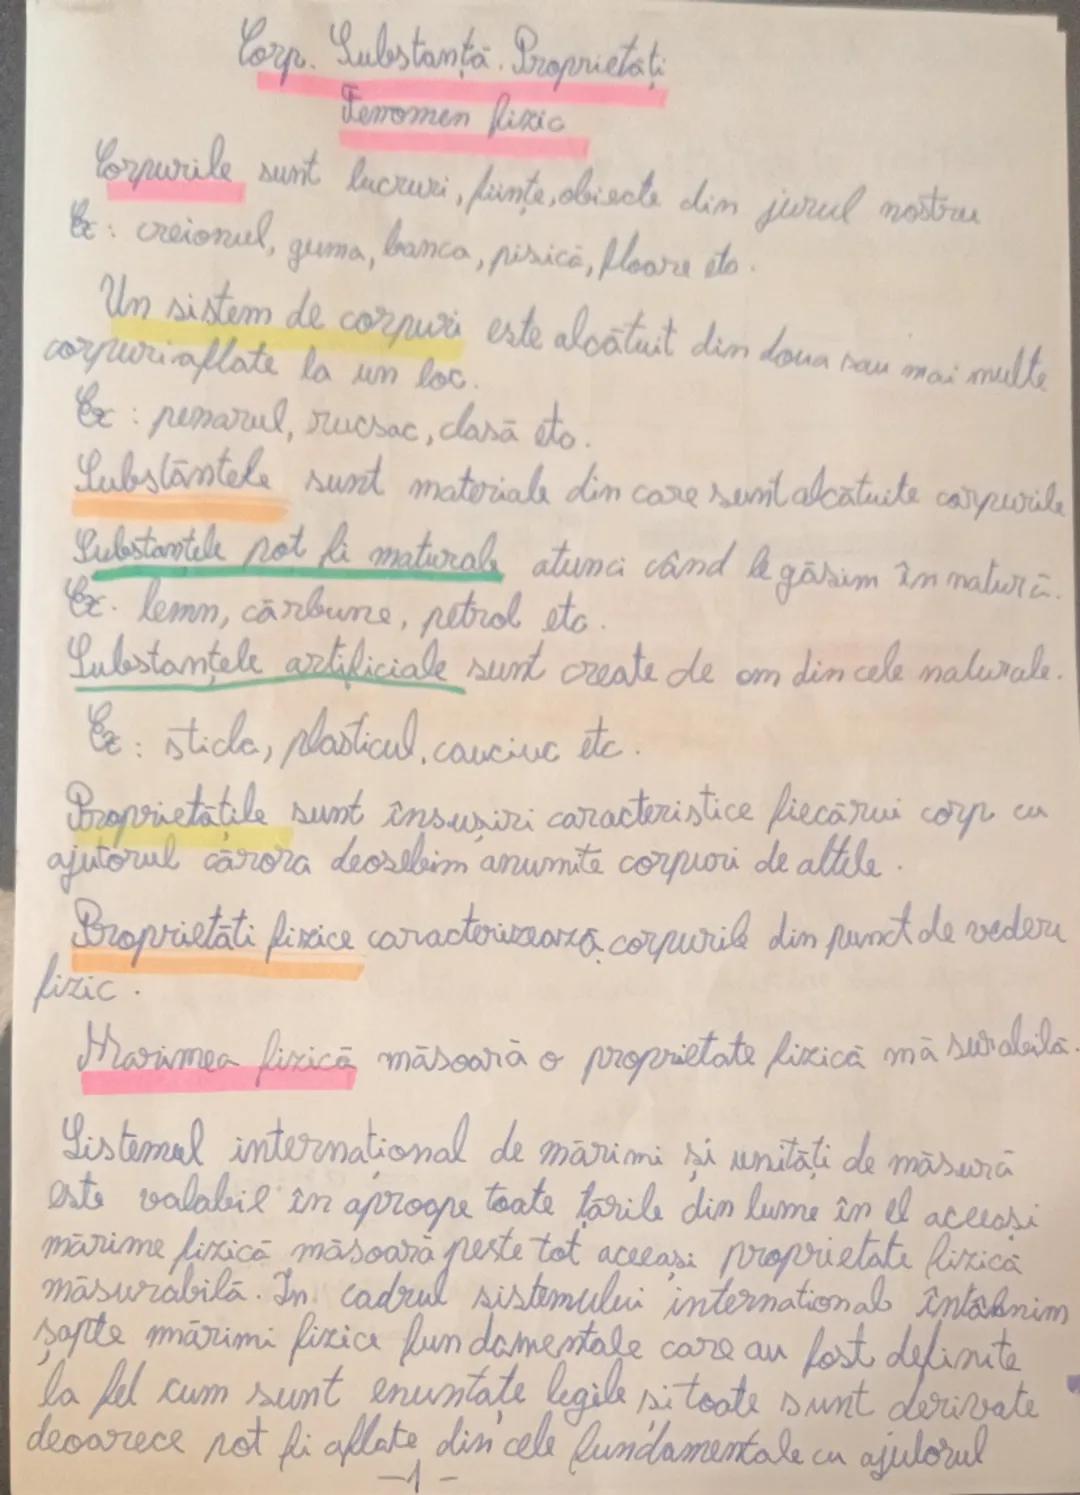 Corp. Substanță. Proprietăți
Fenomen fizic
Corpurile sunt lucruri, ființe, obiecte din jurul nostru
Ex: creionul, guma, banca, pisică, floare etc.
Un sistem de corpuri este alcătuit din doua sau mai multe
corpuri aflate la un loc.
Ex: penarul, rucsac, clasă etc.
Substăntele sunt materiale din care sunt alcătuite corpurile
Substantele pot fi naturale atunci când le găsim în natură.
Ex. lemn, cărbune, petrol etc.
Substanțele artificiale sunt create de om din cele naturale.
Ex: sticla, plasticul, cauciuc etc.
Proprietățile sunt însușiri caracteristice fiecărui corp cu
ajutorul cărora deosebim anumite corpuri de altele.
Proprietăti fizice caracterizează corpurile din punct de vedere
fizic.
Marimea fizică măsoară o proprietate fizică măsurabilă.
Sistemul internațional de mărimi și unități de măsură
este valabil în aproape toate țările din lume în el aceeași
mărime fizică măsoară peste tot aceeași proprietate fizică
măsurabilă. In cadrul sistemului international întâlnim
șapte mărimi fizice fundamentale care au fost definite
la fel cum sunt enunțate legile și toate sunt derivate
deoarece pot fi aflate din cele fundamentale cu ajutorul
-1-